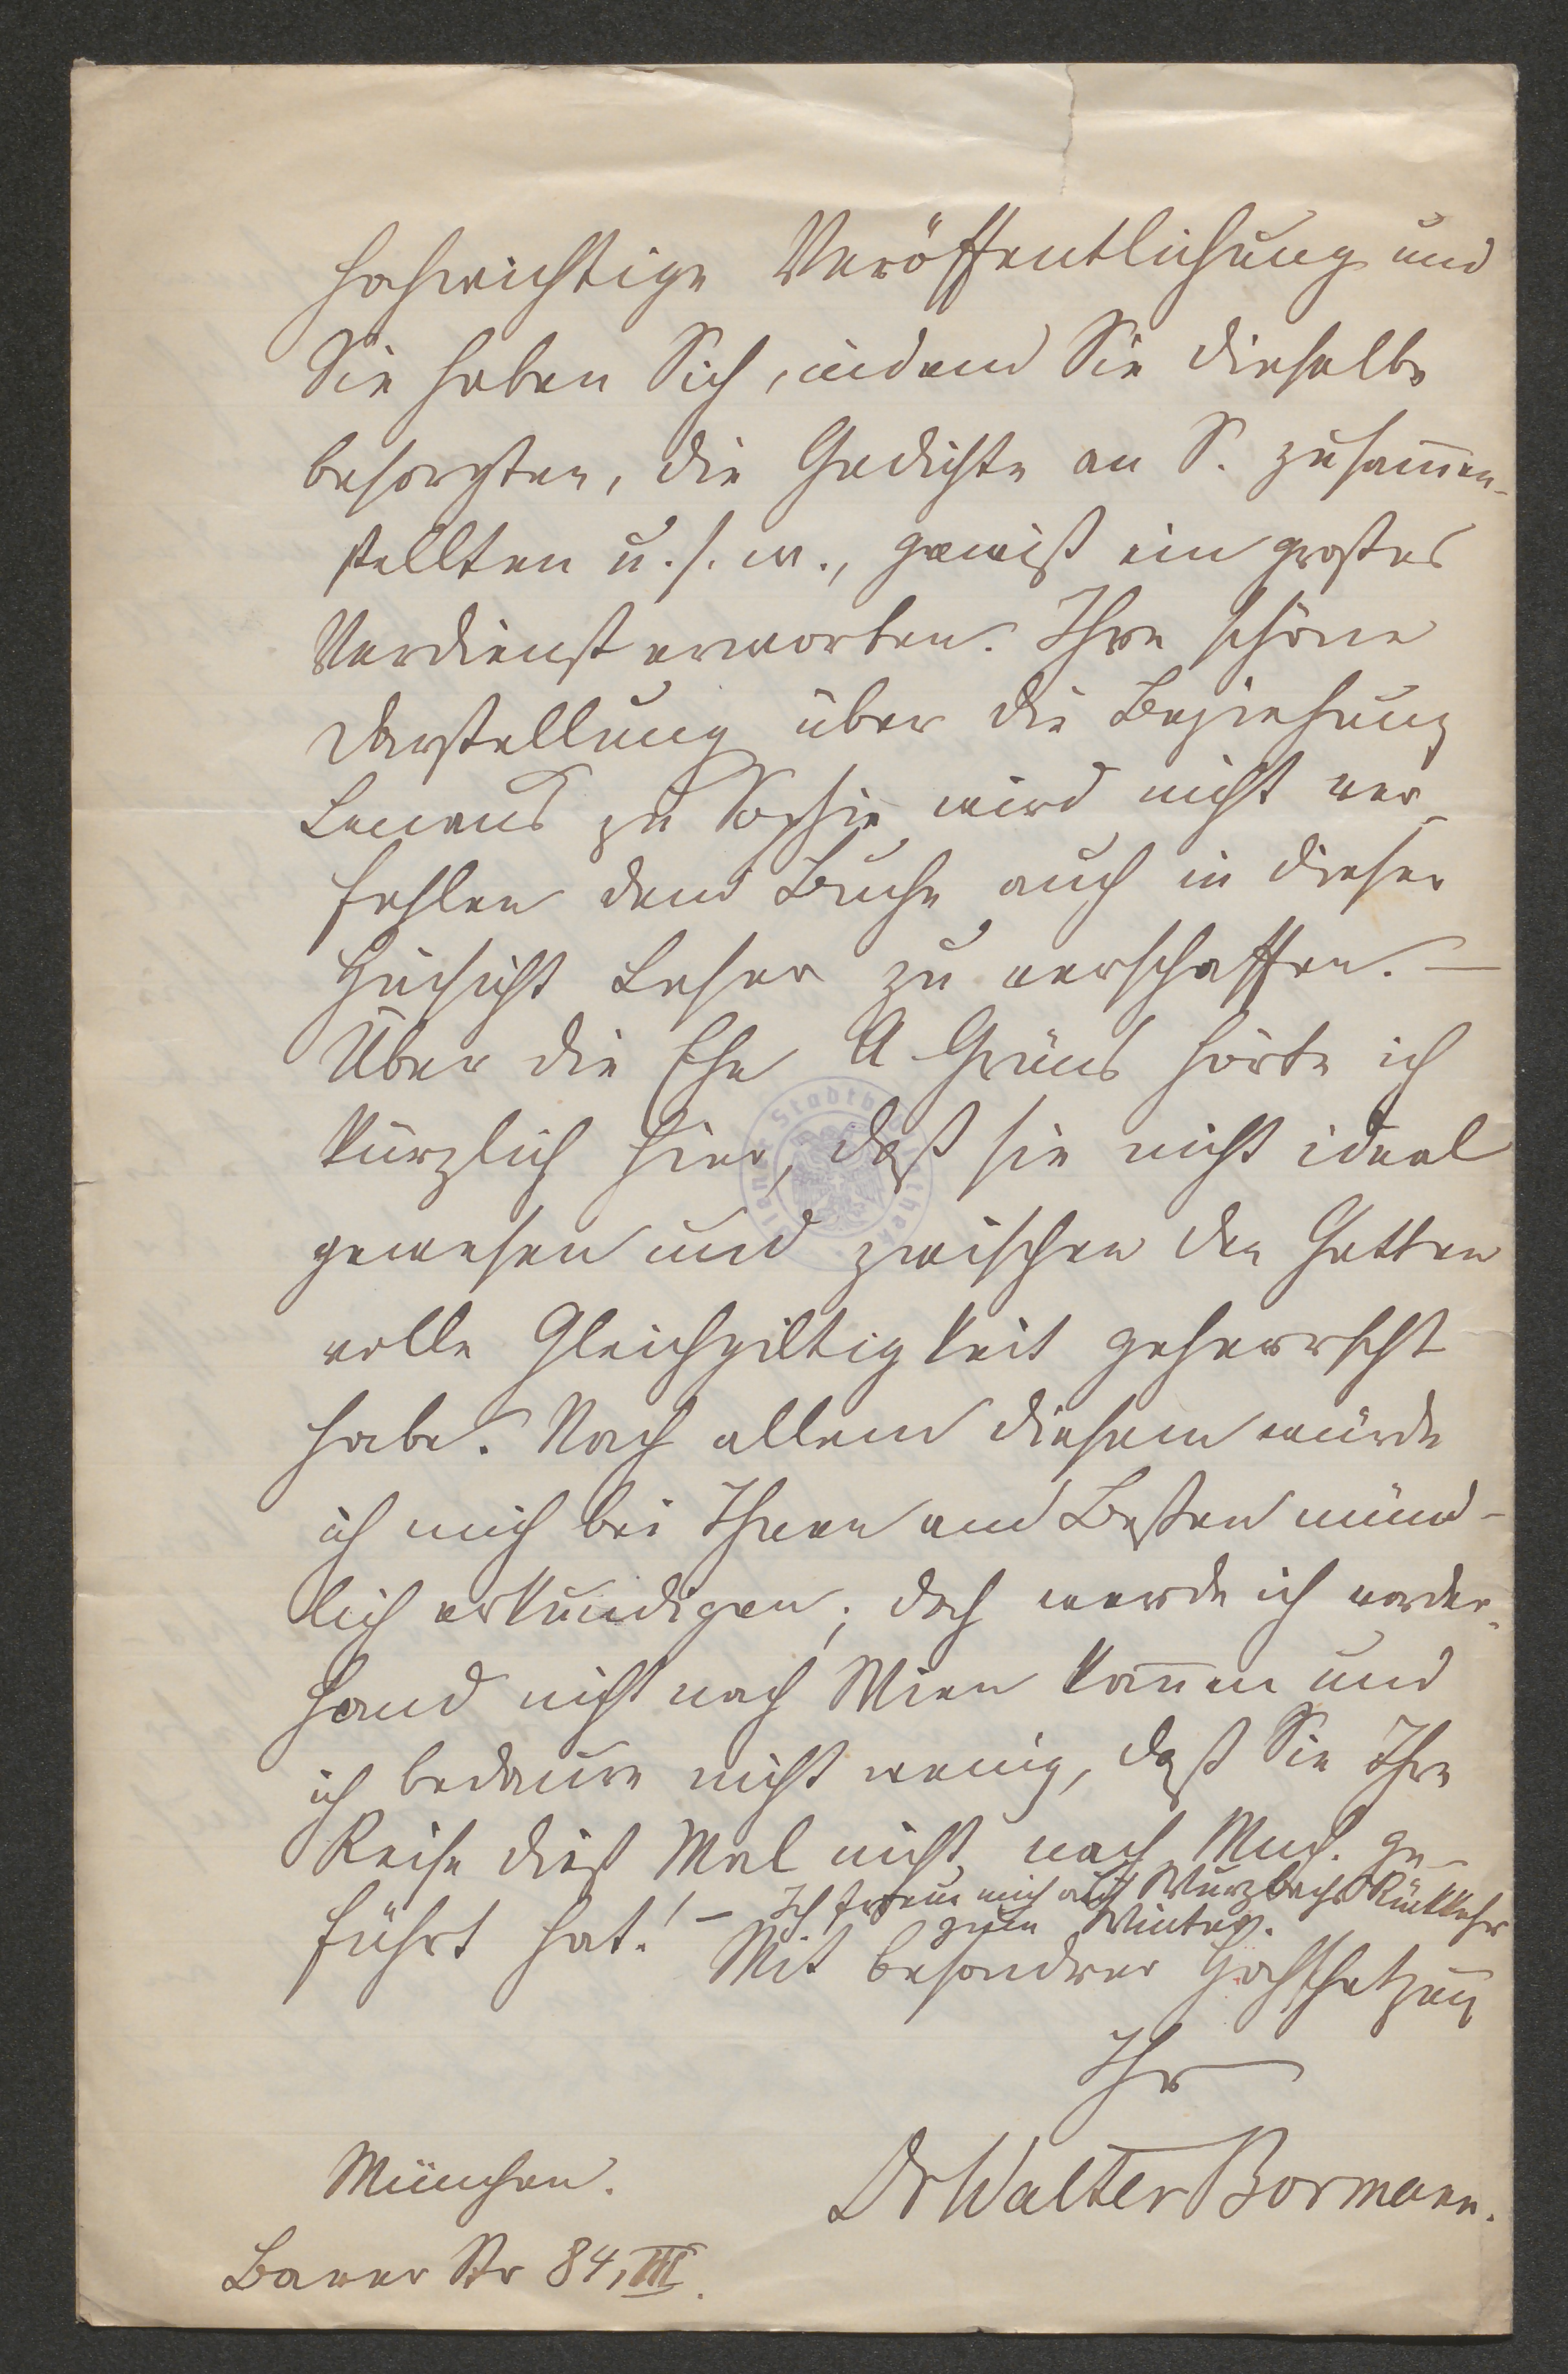 hochwichtige Veröffentlichung und
Sie haben Sich, indem Sie dieselbe
besorgten, die Gedichte an S. zusam̅en-
stellten u. s. w., gewiß ein großes
Verdienst erworben. Ihre schöne
Darstellung über die Beziehung
Lenaus zu Sophie wird nicht ver-
fehlen dem Buche auch in dieser
Hinsicht Leser zu verschaffen. —
Über die Ehe A Grüns hörte ich
kürzlich hier, daß sie nicht ideal
gewesen und zwischen den Gatten
volle Gleichgiltigkeit geherrscht
habe. Nach allem diesem würde
ich mich bei Ihnen am Besten münd-
lich erkundigen; doch werde ich vorder-
hand nicht nach Wien kom̅en und
ich bedaure nicht wenig, daß Sie Ihre
Reise dieß Mal nicht nach Mnch. ge-
führt hat! – Ich freue mich auf Wurzbachs Rückkehr
zum Winter.
Mit besondrer Hochschätzung
Ihr
Dr Walter Bormann.
München.
Barer Str 84, III.
Wiener Stadtbibliothek